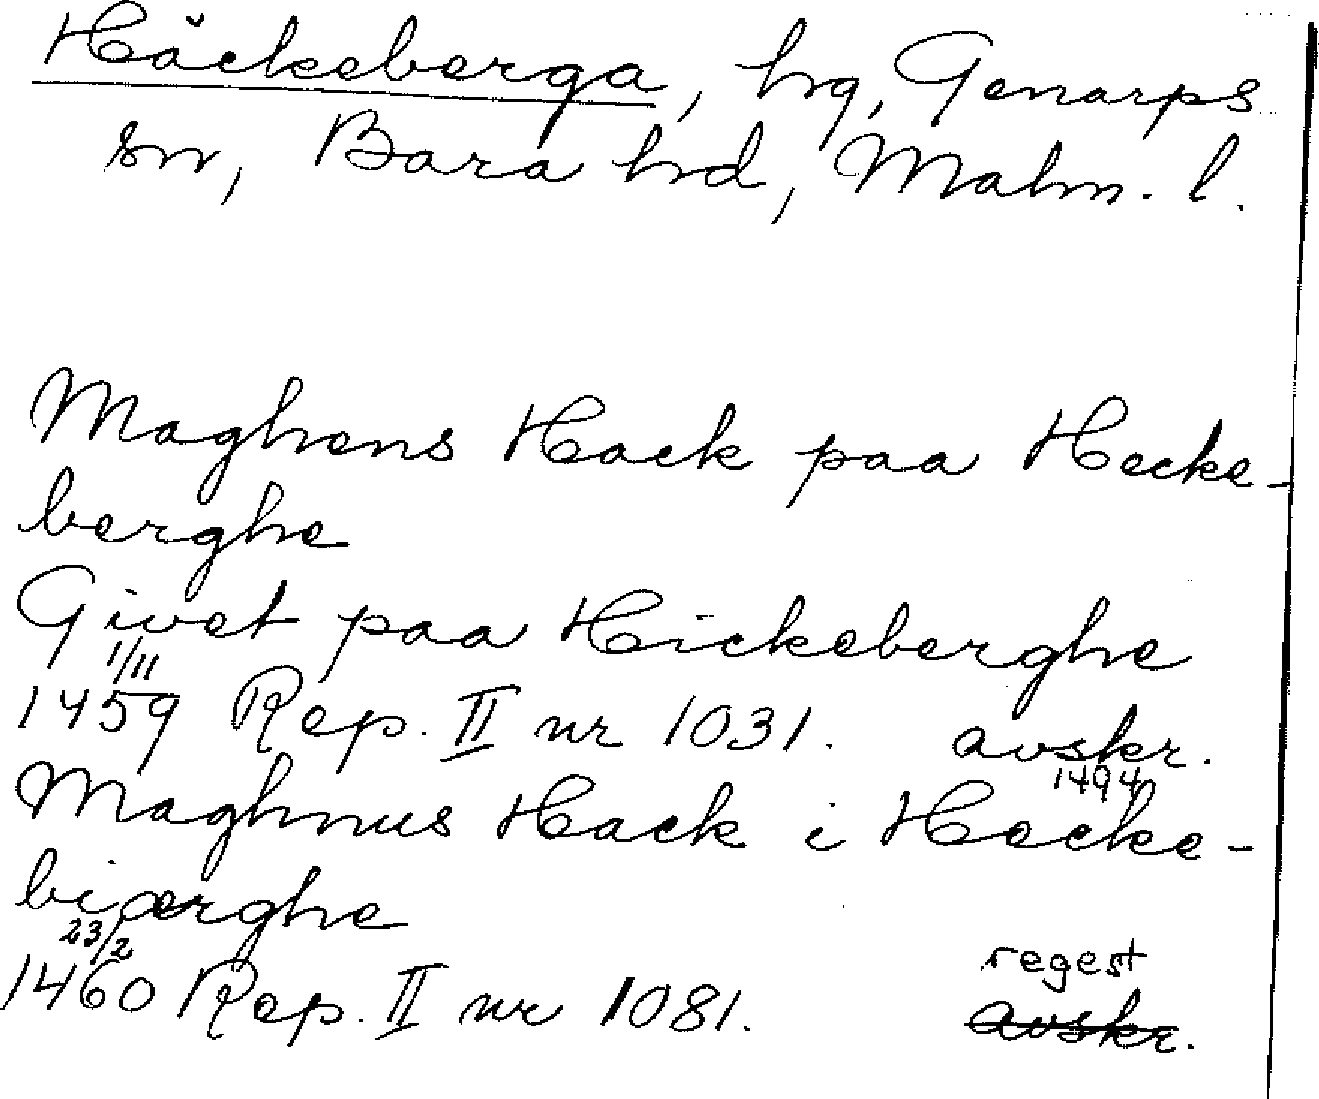 Häckeberga, hg, Genarps
sn, Bara hd, Malm. l.
Maghens Hack paa Hecke-
berghe
Givet paa Hickeberghe
1/11
1459 Rep. II nr 1031. avskr.
1494
Maghnus Hack i Hecke-
biærghe
23/2
regest
1460 Rep. II nr 1081. avskr.